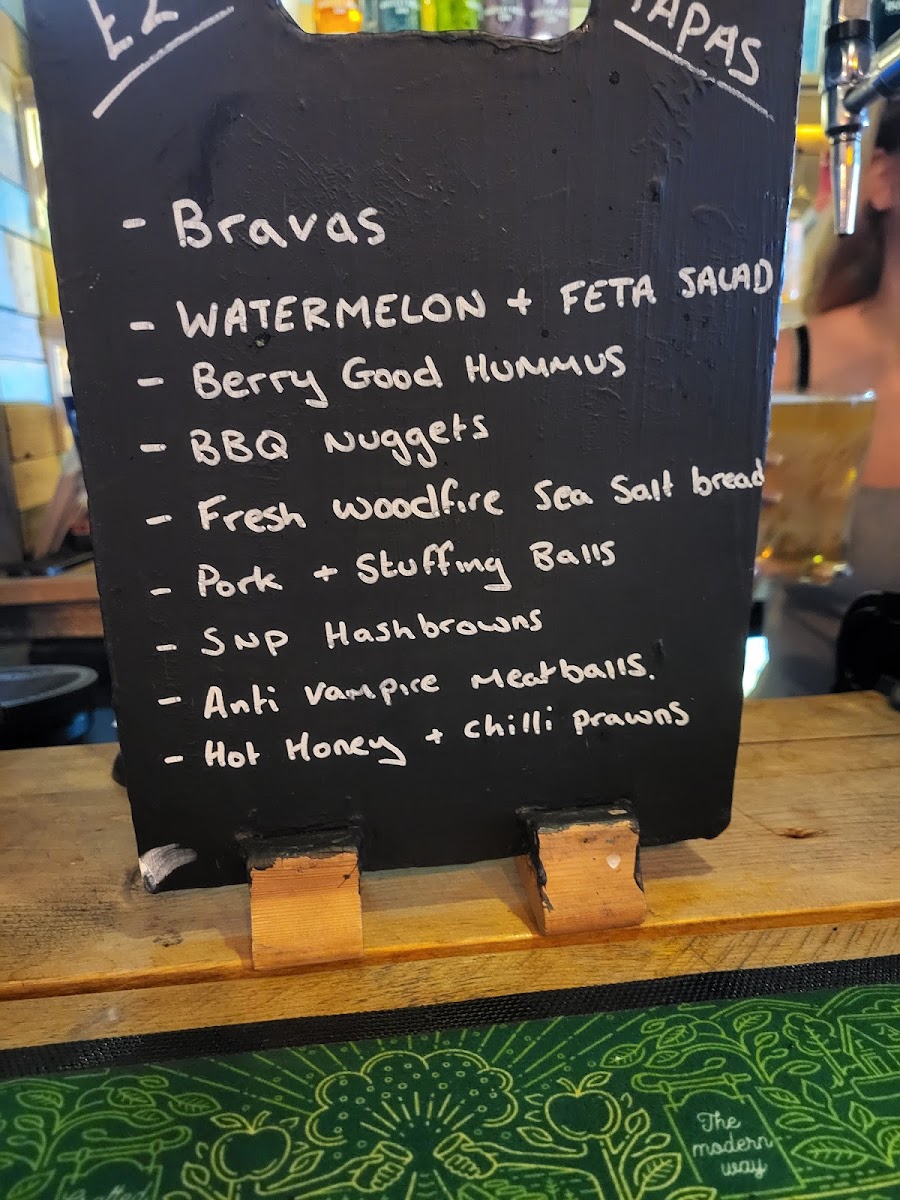 £2
TAPAS
- Bravas
- WATERMELON + FETA SALAD
- Berry Good HUMMUS
- BBQ Nuggets
- Fresh woodfire Sea Salt bread
- Pork + Stuffing Balls
- SNP Hashbrowns
- Anti Vampire Meatballs.
- Hot Honey + chilli prawns
The
modern
way